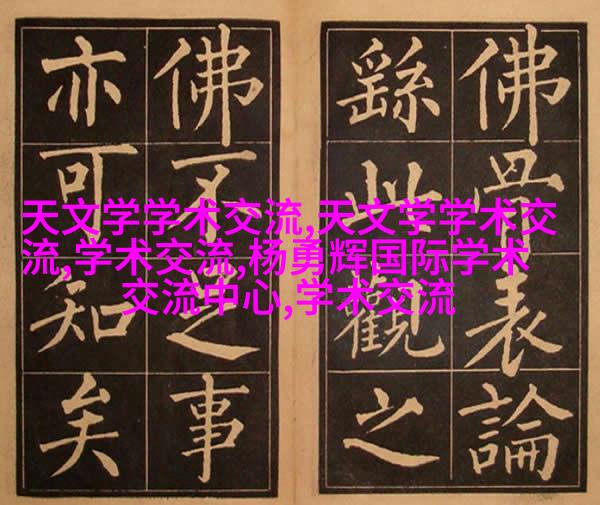 佛骨表論
繇此觀之
佛不足事
亦可知矣
天文学学术交流,天文学学术交
流,学术交流,杨勇辉国际学术
交流中心,学术交流